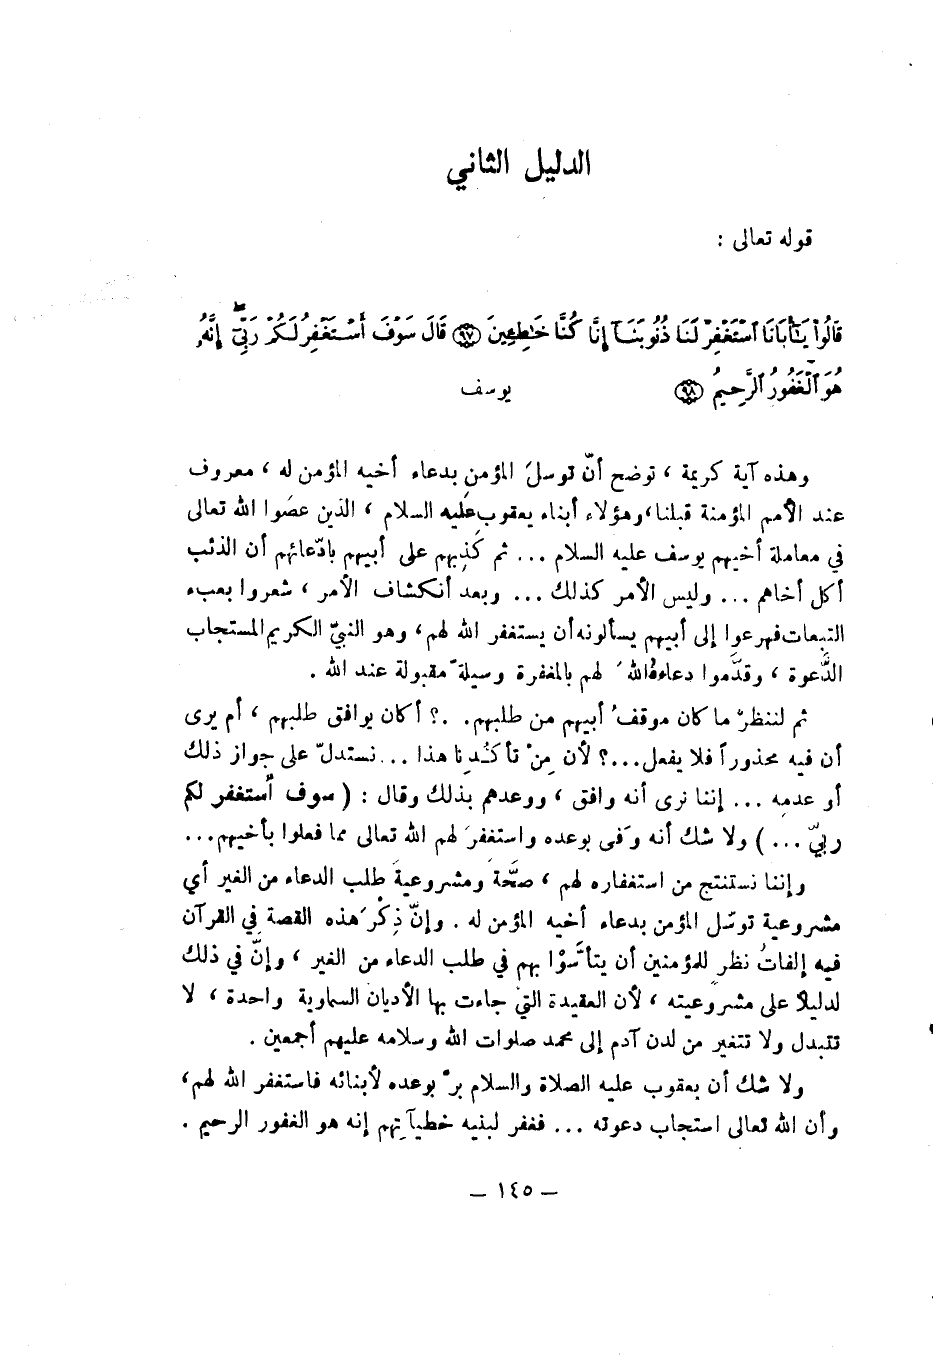 الدليل الثاني
قوله تعالى :
قَالُواْ يَـٰٓأَبَانَا ٱسۡتَغۡفِرۡ لَنَا ذُنُوبَنَآ إِنَّا كُنَّا خَـٰطِـِٔينَ ٩٧ قَالَ سَوۡفَ أَسۡتَغۡفِرُ لَكُمۡ رَبِّيٓۖ إِنَّهُۥ
هُوَ ٱلۡغَفُورُ ٱلرَّحِيمُ ٩٨ يوسف
وهذه آية كريمة ، توضح أنّ توسلَ المؤمنِ بدعاء أخيه المؤمن له ، معروف
عند الأمم المؤمنة قبلنا، وهؤلاء أبناء يعقوب عليه السلام ، الذين عصَوا الله تعالى
في معاملة أخيهم يوسف عليه السلام ... ثم كَذِبِهم على أبيهم بادّعائهم أن الذئب
أكل أخاهم ... وليس الأمر كذلك ... وبعد أنكشاف الأمر ، شعروا بعبء
التبعات فهرعوا إلى أبيهم يسألونه أن يستغفر الله لهم، وهو النبيّ الكريم المستجاب
الدَّعوة ، وقدَّموا دعاءهُ اللهَ لهم بالمغفرة وسيلةً مقبولة عند الله .
ثم لننظرْ ما كان موقفُ أبيهم من طلبهم. .؟ أكان يوافق طلبهم ، أم يرى
أن فيه محذوراً فلا يفعل...؟ لأن مِنْ تأكُّدِنا هذا ... نستدلّ على جواز ذلك
أو عدمِه ... إننا نرى أنه وافق ، ووعدهم بذلك وقال : ( سوف أستغفر لكم
ربيّ ... ) ولا شك أنه وَفى بوعده واستغفرَ لهم الله تعالى مما فعلوا بأخيهم...
وإننا نستنتج من استغفاره لهم ، صحَّة ومشروعيةَ طلب الدعاء من الغير أي
مشروعية توسّل المؤمن بدعاء أخيه المؤمن له . وإنّ ذِكْرَ هذه القصة في القرآن
فيه إلفاتُ نظرٍ للمؤمنين أن يتأسَّوْا بهم في طلب الدعاء من الغير ، وإنّ في ذلك
لدليلاً على مشروعيته ، لأن العقيدة التي جاءت بها الأديان السماوية واحدة ، لا
تتبدل ولا تتغير من لدن آدم إلى محمد صلوات الله وسلامه عليهم أجمعين .
ولا شك أن يعقوب عليه الصلاة والسلام برَّ بوعده لأبنائه فاستغفر الله لهم،
وأن الله تعالى استجاب دعوته ... فغفر لبنيه خطيآتِهم إنه هو الغفور الرحيم .
– ١٤٥ –